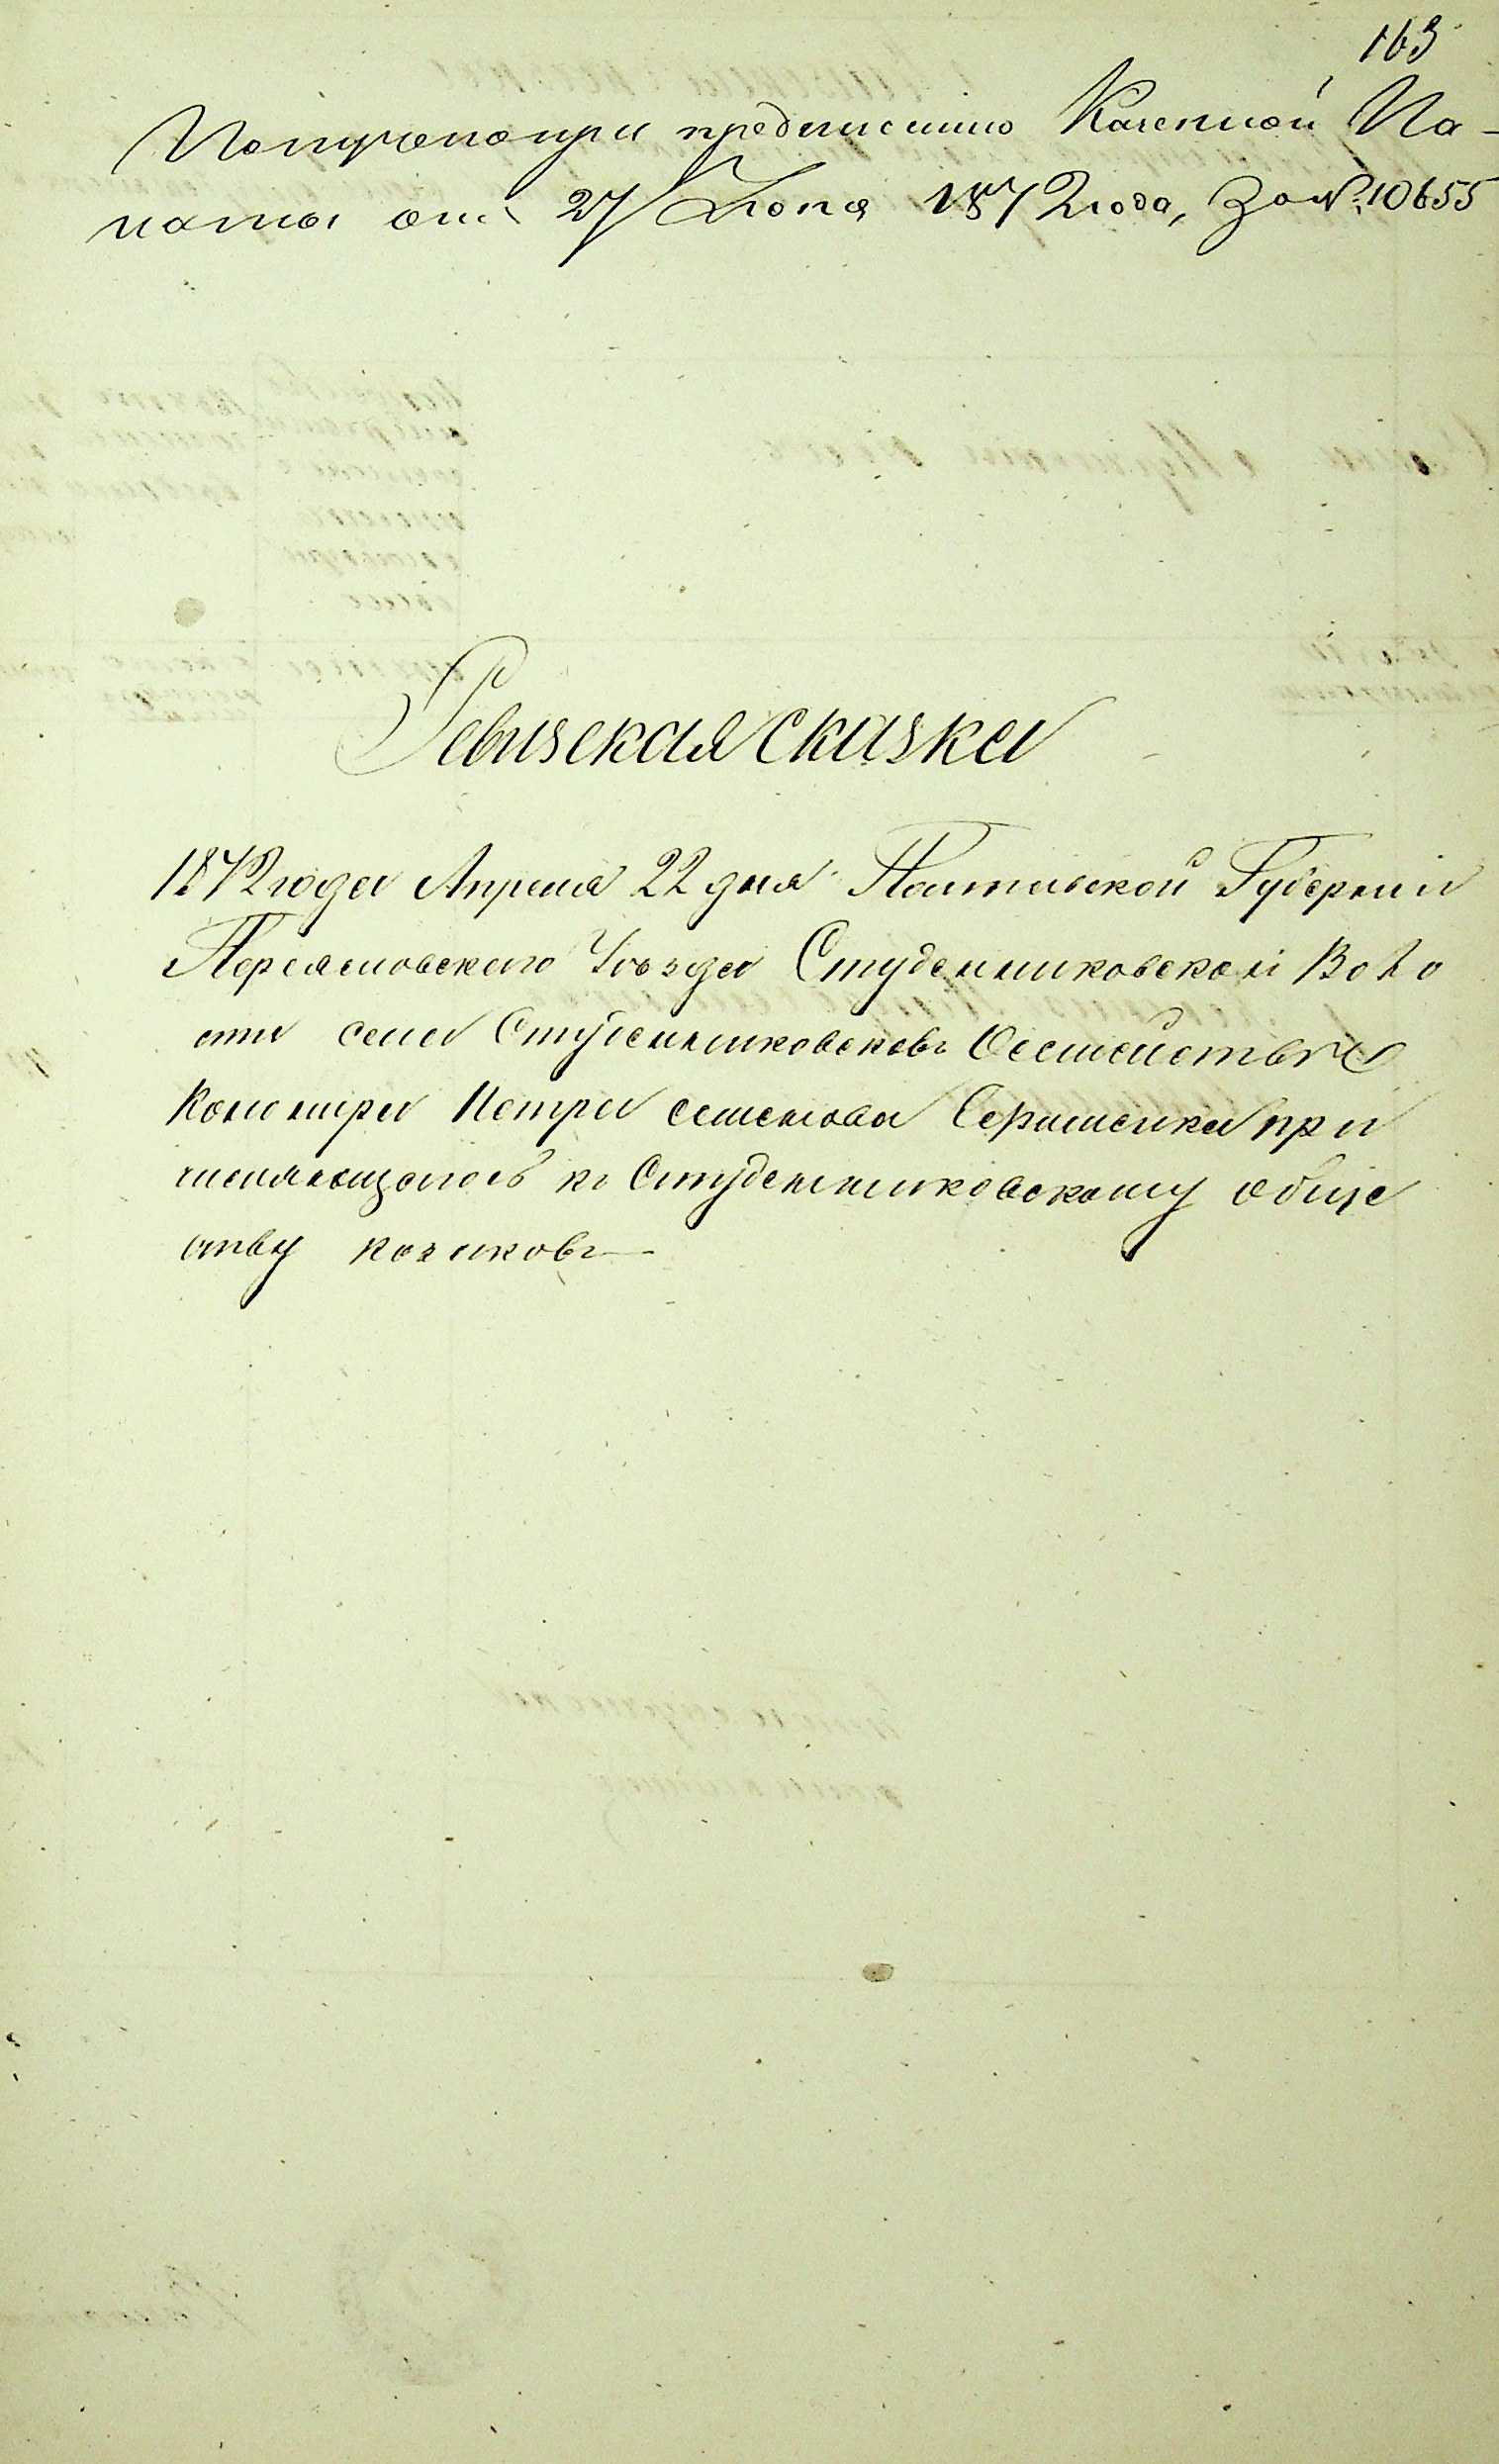 163
Получено при предписанiю Казенной Па-
латы отъ 27 Iюня 1872 года, За №. 10655
Ревизская сказка
1872 года Апреля 22 дня Полтавской Губернии
Переясловского Уѣзда Студенниковской Воло
сти села Студенниковсковъ
Петра семенова при
числяющагось къ Студенниковскому обще
ству козаковъ